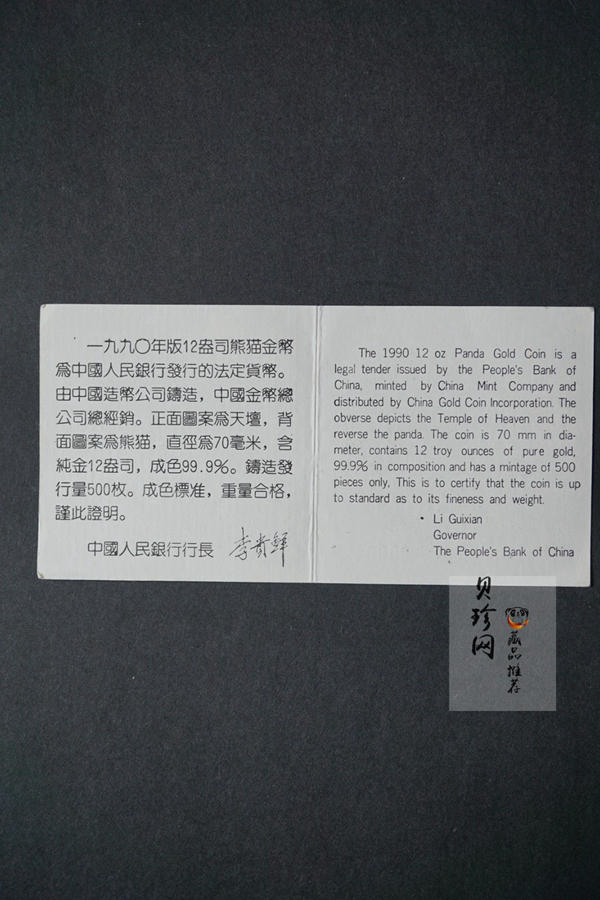 一九九〇年版12盎司熊猫金幣
爲中國人民銀行發行的法定貨幣。
由中國造幣公司鑄造，中國金幣總
公司總經銷。正面圖案爲天壇，背
面圖案爲熊猫，直徑爲70毫米，含
純金12盎司，成色99.9%。鑄造發
行量500枚。成色標准，重量合格，
謹此證明。
中國人民銀行行長 李貴鲜
The 1990 12 oz Panda Gold Coin is a
legal tender issued by the People's Bank of
China, minted by China Mint Company and
distributed by China Gold Coin Incorporation. The
obverse depicts the Temple of Heaven and the
reverse the panda. The coin is 70 mm in dia-
meter, contains 12 troy ounces of pure gold,
99.9% in composition and has a mintage of 500
pieces only, This is to certify that the coin is up
to standard as to its fineness and weight.
Li Guixian
Governor
The People's Bank of China
贝珍网
藏品推荐